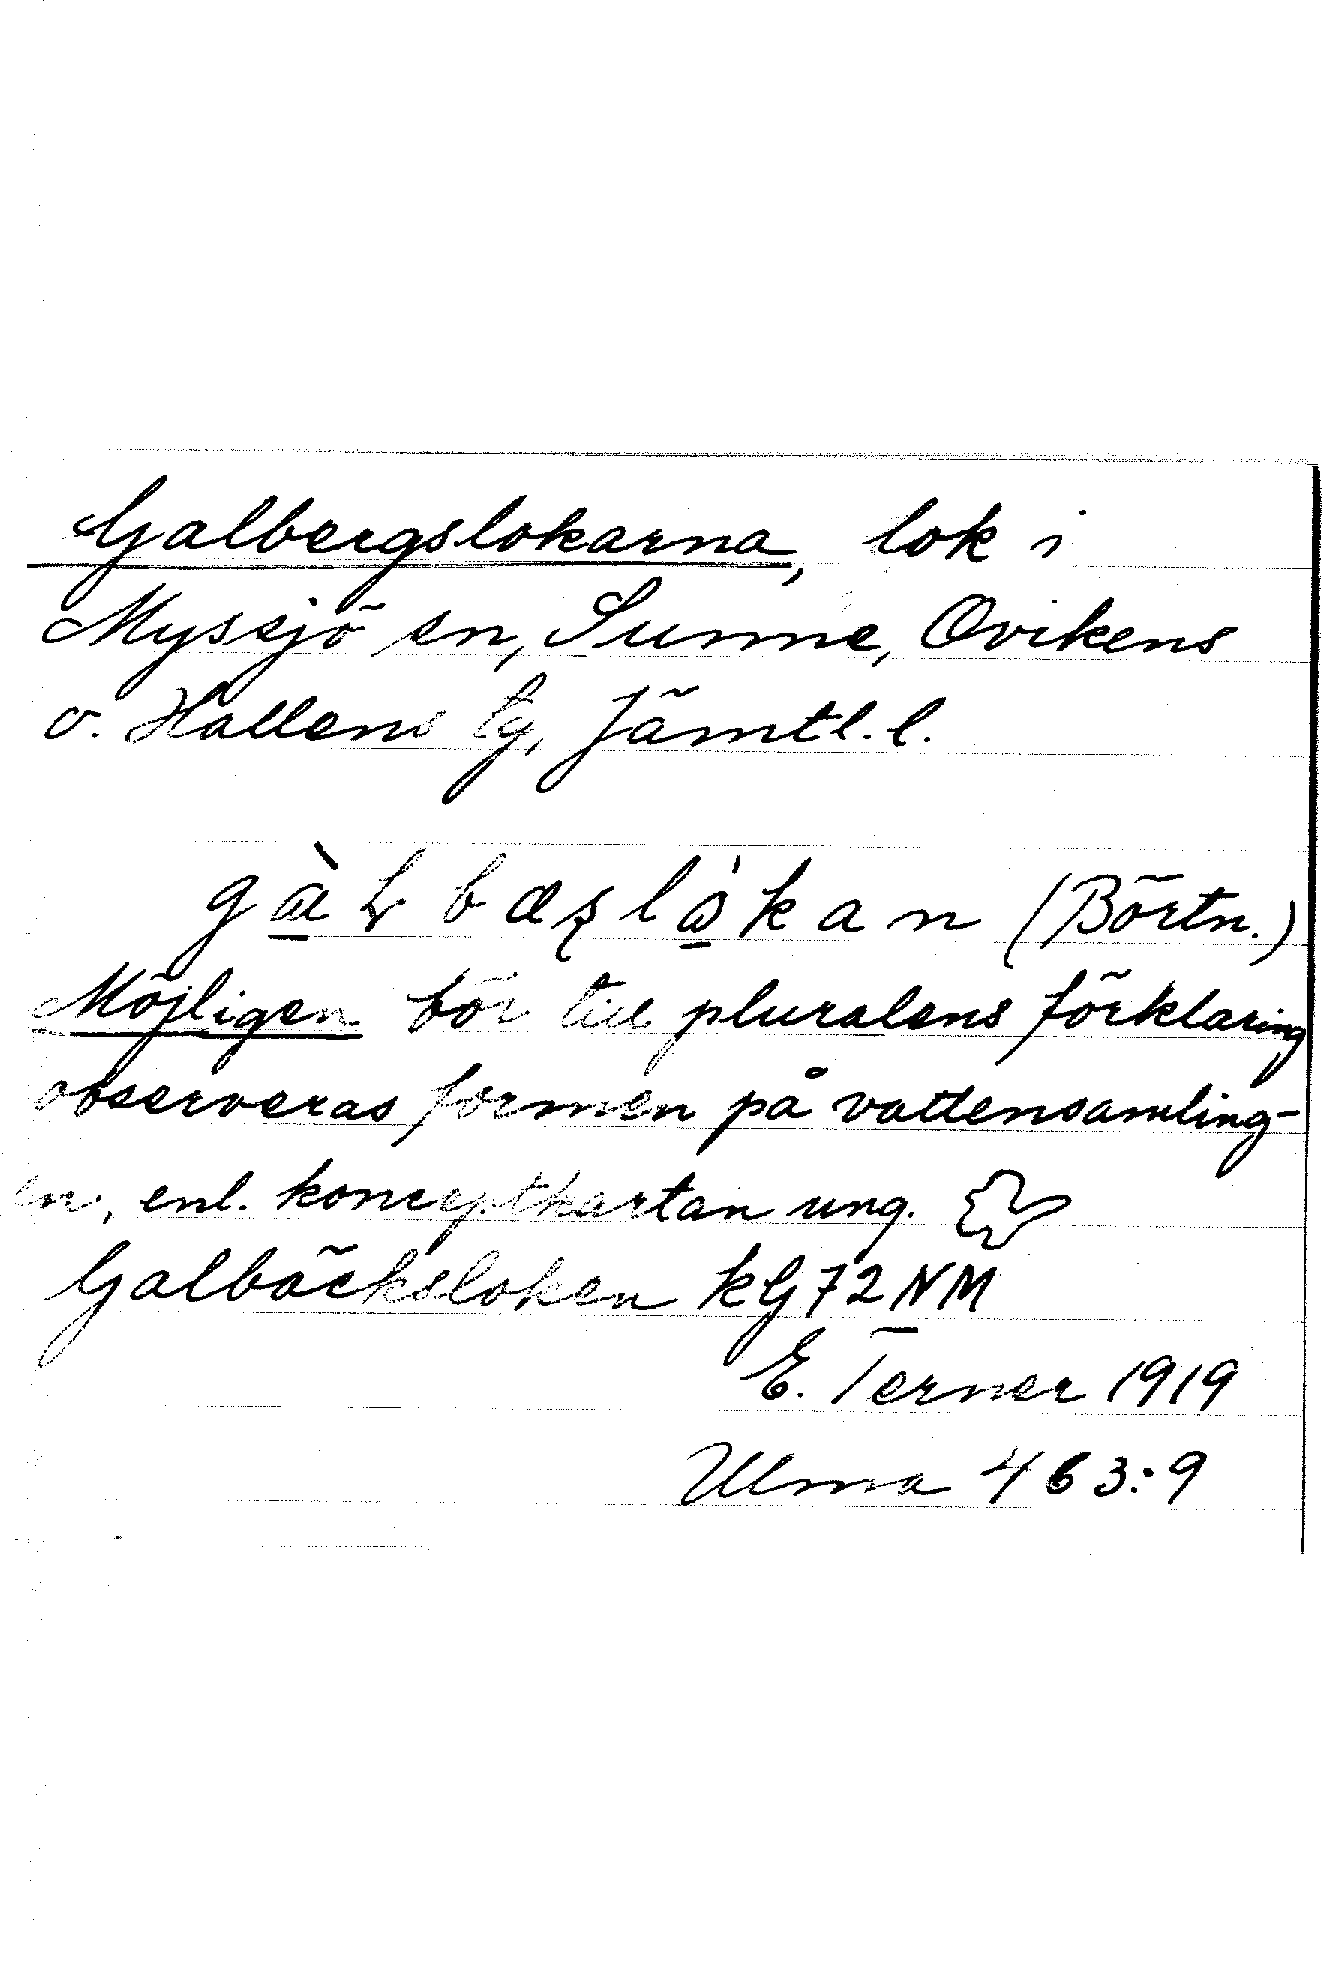 Galbergslokarna, lok i
Myssjö sn, Sunne, Ovikens
o. Hallens tg, Jämtl. l.
(Börtn.)
Möjligen bör till pluralens förklaring
observeras formen på vattensamling-
en, enl. konceptkartan ung.
Galbäcksloken kG72NM
E. Terner 1919
Ulma 463:9